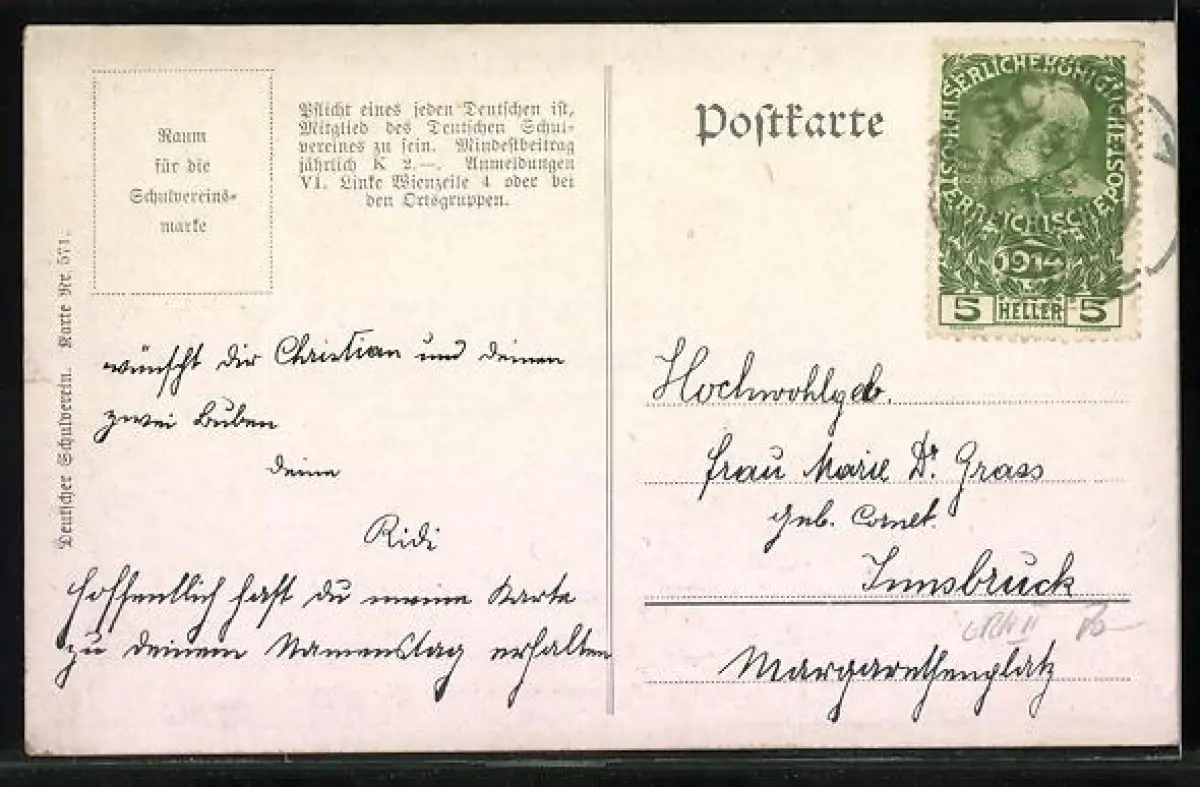 Raum
für die
Schulvereins-
marke
Pflicht eines jeden Deutschen ist,
Mitglied des Deutschen Schul-
vereines zu sein. Mindestbeitrag
jährlich K 2.—. Anmeldungen
VI. Linke Wienzeile 4 oder bei
den Ortsgruppen.
Deutscher Schulverein. Karte Nr. 571.
wünscht dir Christian und deinen
zwei Buben
deine
Ridi
Hoffentlich hast du meine Karte
zu deinem Namenstag erhalten
Postkarte
KAISERLICHE KÖNIGLICHE ÖSTERREICHISCHE POST
1914
5 HELLER 5
Hochwohlgeb.
Frau Marie Dr. Grass
geb. Cornet.
Innsbruck
Margarethenplatz